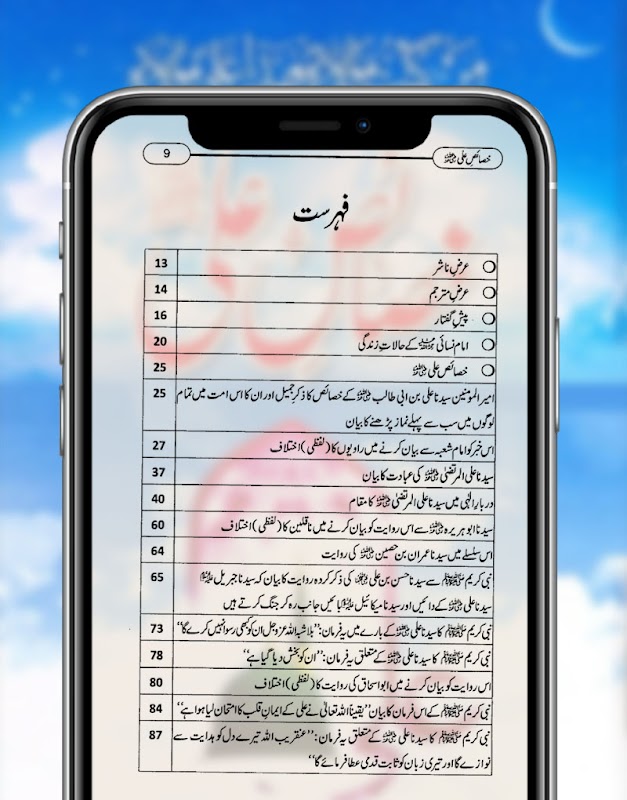 خصائص علی رضی اللہ عنہ 9
فہرست
عرض ناشر 13
عرض مترجم 14
پیش گفتار 16
امام نسائی رحمۃ اللہ علیہ کے حالات زندگی 20
خصائص علی رضی اللہ عنہ 25
امیر المومنین سیدنا علی بن ابی طالب رضی اللہ عنہ کے خصائص کا ذکر جمیل اور ان کا اس امت میں تمام 25
لوگوں میں سب سے پہلے نماز پڑھنے کا بیان
اس خبر کو امام شعبہ سے بیان کرنے میں راویوں کا (لفظی) اختلاف 27
سیدنا علی المرتضیٰ رضی اللہ عنہ کی عبادت کا بیان 37
دربار الٰہی میں سیدنا علی المرتضیٰ رضی اللہ عنہ کا مقام 40
سیدنا ابو ہریرہ رضی اللہ عنہ سے اس روایت کو بیان کرنے میں ناقلین کا (لفظی) اختلاف 60
اس سلسلے میں سیدنا عمران بن حصین رضی اللہ عنہ کی روایت 64
نبی کریم صلی اللہ علیہ وسلم سے سیدنا حسن بن علی رضی اللہ عنہما کی ذکر کردہ روایت کا بیان کہ سیدنا جبریل علیہ السلام 65
سیدنا علی رضی اللہ عنہ کے دائیں اور سیدنا میکائیل علیہ السلام بائیں جانب رہ کر جنگ کرتے ہیں
نبی کریم صلی اللہ علیہ وسلم کا سیدنا علی رضی اللہ عنہ کے بارے میں یہ فرمان: ”بلاشبہ اللہ عزوجل ان کو کبھی رسوا نہیں کرے گا“ 73
نبی کریم صلی اللہ علیہ وسلم کا سیدنا علی رضی اللہ عنہ کے متعلق یہ فرمان: ”ان کو بخش دیا گیا ہے“ 78
اس روایت کو بیان کرنے میں ابو اسحاق کی روایت کا (لفظی) اختلاف 80
نبی کریم صلی اللہ علیہ وسلم کے اس فرمان کا بیان ”یقیناً اللہ تعالیٰ نے علی کے ایمان قلب کا امتحان لیا ہوا ہے“ 84
نبی کریم صلی اللہ علیہ وسلم کا سیدنا علی رضی اللہ عنہ کے متعلق یہ فرمان: ”عنقریب اللہ تیرے دل کو ہدایت سے 87
نوازے گا اور تیری زبان کو ثابت قدمی عطا فرمائے گا“